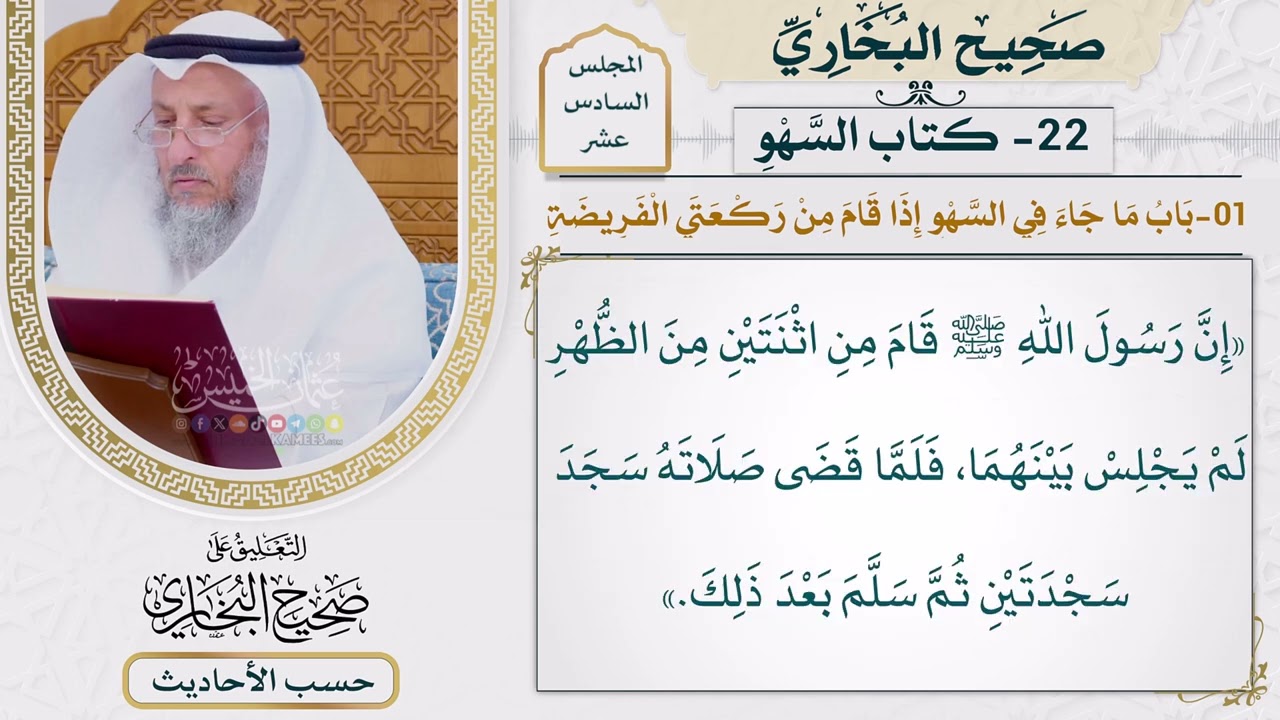 صَحِيح البُخَارِيِّ
المجلس
السادس
عشر
22- كتاب السَّهْوِ
01-بَابُ مَا جَاءَ فِي السَّهْوِ إِذَا قَامَ مِنْ رَكْعَتَيِ الْفَرِيضَةِ
«إِنَّ رَسُولَ اللهِ ﷺ قَامَ مِنِ اثْنَتَيْنِ مِنَ الظُّهْرِ
لَمْ يَجْلِسْ بَيْنَهُمَا، فَلَمَّا قَضَى صَلَاتَهُ سَجَدَ
سَجْدَتَيْنِ ثُمَّ سَلَّمَ بَعْدَ ذَلِكَ.»
عثمان الخميس
التَّعْلِيقُ عَلَى
صَحِيح البُخَارِي
حسب الأحاديث